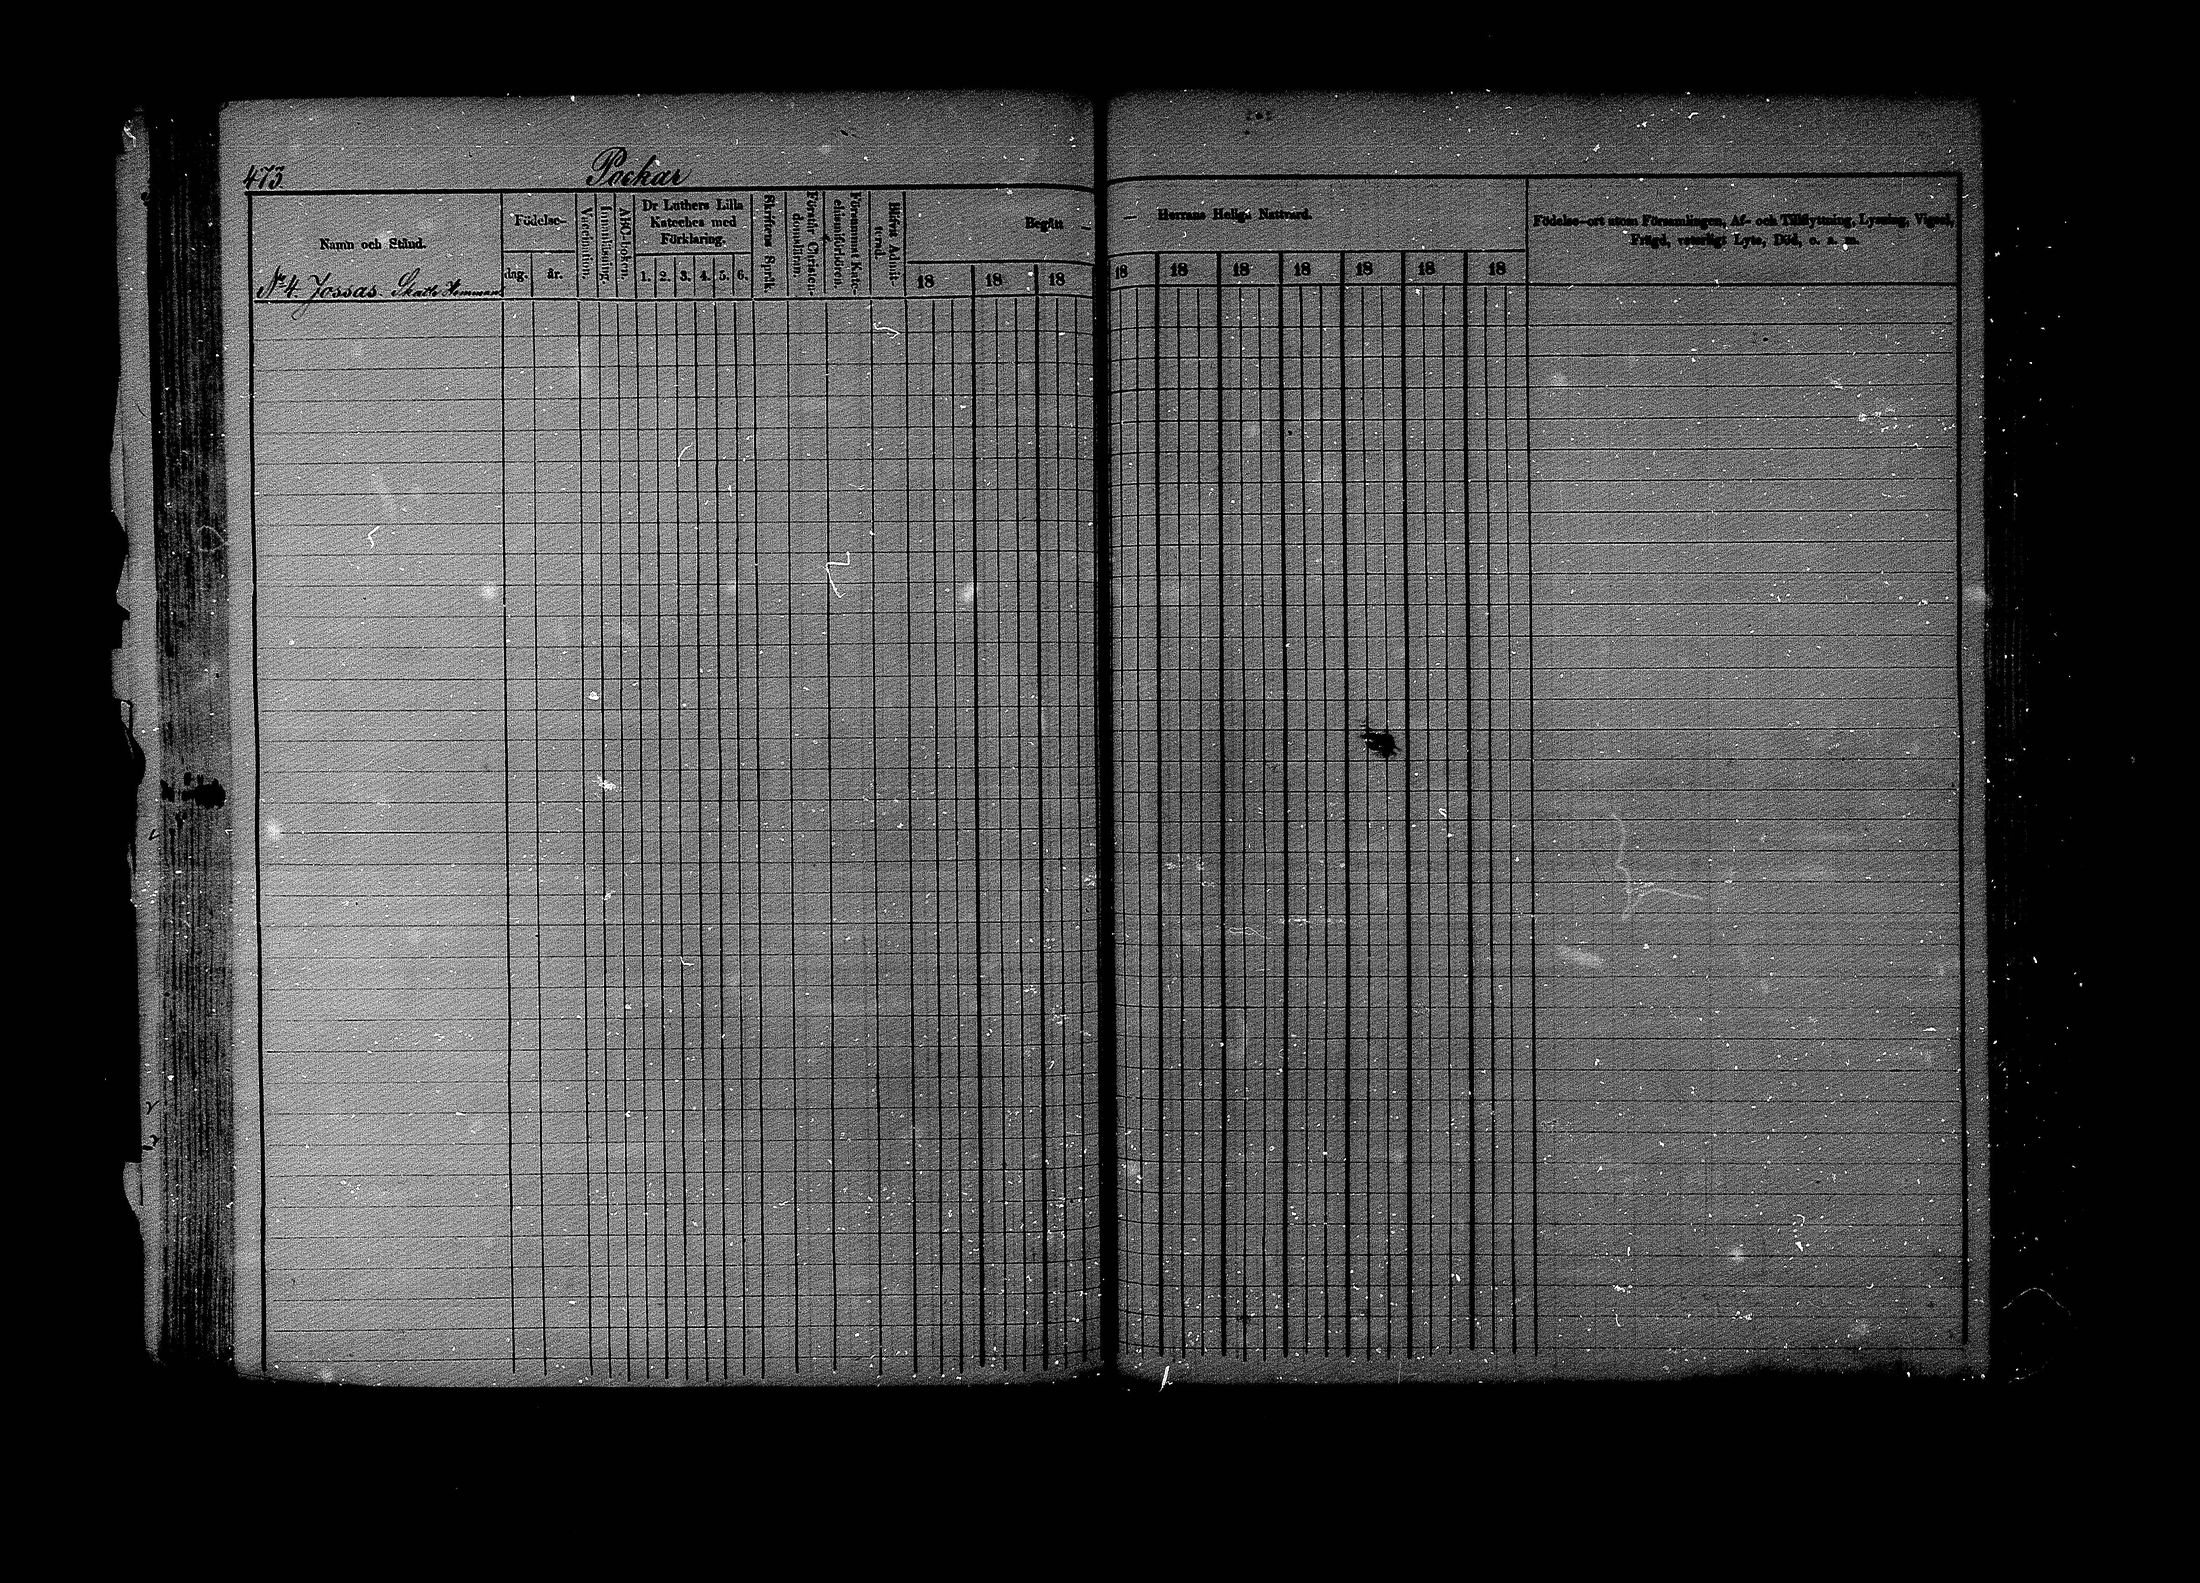 473
Pockar
Namn och Stånd.
Födelse-
dag. år.
Vaccination.
Innanläsning.
ABC-boken.
Dr Luthers Lilla
Kateches med
Förklaring.
1. 2. 3. 4. 5. 6.
Skriftens Språk.
Förstår Christen-
domslifvet.
Begått —
18 18 18
— Herrans Heliga Nattvard.
18 18 18 18 18 18 18
Födelse-ort utom Församlingen, Af- och Tillflyttning, Lysning, Vigsel,
Frägd, Lyte, Död, o. s. m.
N:o 4. Jossas. Skatte Hemman